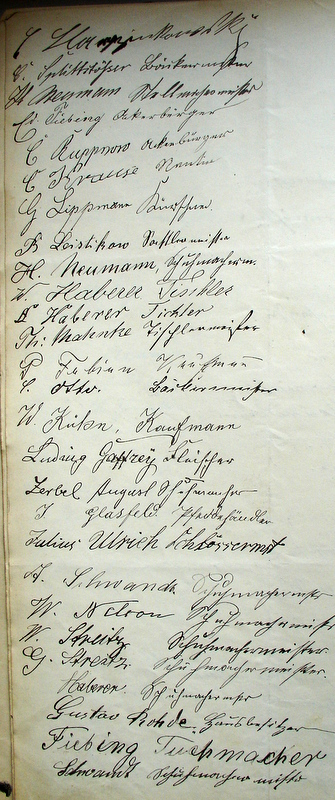 Splittstößer Bäckermeister
H Neumann Stellmachermeister
Ed. Fiebing Ackerbürger
C Ruppnow Ackerbürger
C Krause Rentier
G Lippmann Kürschner
R Leistikow Sattlermeister
H. Neumann, Schuhmacherm.
W. Haberer Tischler
H Haberer Tischler
Th: Mahnke Tischlermeister
P Fabian Kaufmann
C. Otto. Bäckermeister
W. Kühn, Kaufmann
Ludwig Gaffrey Fleischer
Zerbel August Schuhmacher
J Glasfeld Pferdehändler
Julius Ulrich Schlossermst
A. Schwandt Schuhmachermstr
W. Nelson Schuhmachermeister
W. Streetz Schuhmachermeister
G. Streetz. Schuhmachermeister.
Haberer. Schuhmachermstr
Gustav Rohde. Hausbesitzer
Fiebing Tuchmacher
Schwandt Schuhmachermeister